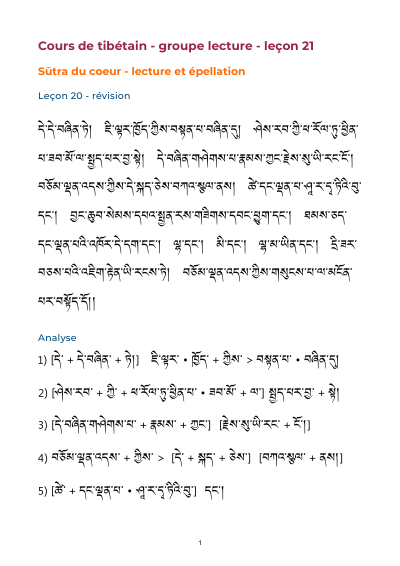 Cours de tibétain - groupe lecture - leçon 21
Sūtra du coeur - lecture et épellation
Leçon 20 - révision
དེ་དེ་བཞིན་ཏེ། ཇི་ལྟར་ཁྱོད་ཀྱིས་བསྟན་པ་བཞིན་དུ། ཤེས་རབ་ཀྱི་ཕ་རོལ་ཏུ་ཕྱིན་
པ་ཟབ་མོ་ལ་སྤྱད་པར་བྱ་སྟེ། དེ་བཞིན་གཤེགས་པ་རྣམས་ཀྱང་རྗེས་སུ་ཡི་རང་ངོ་།
བཅོམ་ལྡན་འདས་ཀྱིས་དེ་སྐད་ཅེས་བཀའ་སྩལ་ནས། ཚེ་དང་ལྡན་པ་ཤཱ་ར་དྭ་ཏིའི་བུ་
དང་། བྱང་ཆུབ་སེམས་དཔའ་སྤྱན་རས་གཟིགས་དབང་ཕྱུག་དང་། ཐམས་ཅད་
དང་ལྡན་པའི་འཁོར་དེ་དག་དང་། ལྷ་དང་། མི་དང་། ལྷ་མ་ཡིན་དང་། དྲི་ཟར་
བཅས་པའི་འཇིག་རྟེན་ཡི་རངས་ཏེ། བཅོམ་ལྡན་འདས་ཀྱིས་གསུངས་པ་ལ་མངོན་
པར་བསྟོད་དོ།།
Analyse
1) [དེ་ + དེ་བཞིན་ + ཏེ།] ཇི་ལྟར་ • ཁྱོད་ + ཀྱིས་ > བསྟན་པ་ • བཞིན་དུ།
2) [ཤེས་རབ་ + ཀྱི་ + ཕ་རོལ་ཏུ་ཕྱིན་པ་ • ཟབ་མོ་ + ལ་] སྤྱད་པར་བྱ་ + སྟེ།
3) [དེ་བཞིན་གཤེགས་པ་ + རྣམས་ + ཀྱང་] [རྗེས་སུ་ཡི་རང་ + ངོ་།]
4) བཅོམ་ལྡན་འདས་ + ཀྱིས་ > [དེ་ + སྐད་ + ཅེས་] [བཀའ་སྩལ་ + ནས།]
5) [ཚེ་ + དང་ལྡན་པ་ • ཤཱ་ར་དྭ་ཏིའི་བུ་] དང་།
1